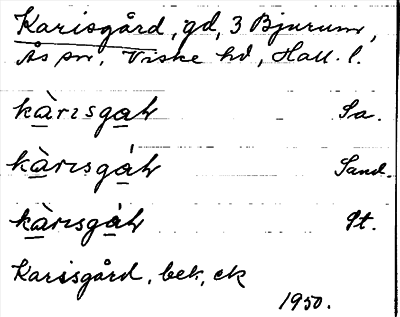 Karisgård, gd, 3 Bjurum,
Ås sn, Viske hd, Hall. l.
kàrɪsgaʈ Sa.
kàrɪsgáʈ Sand.
kàrɪsgàʈ St.
Karisgård, bek, ek
1950.